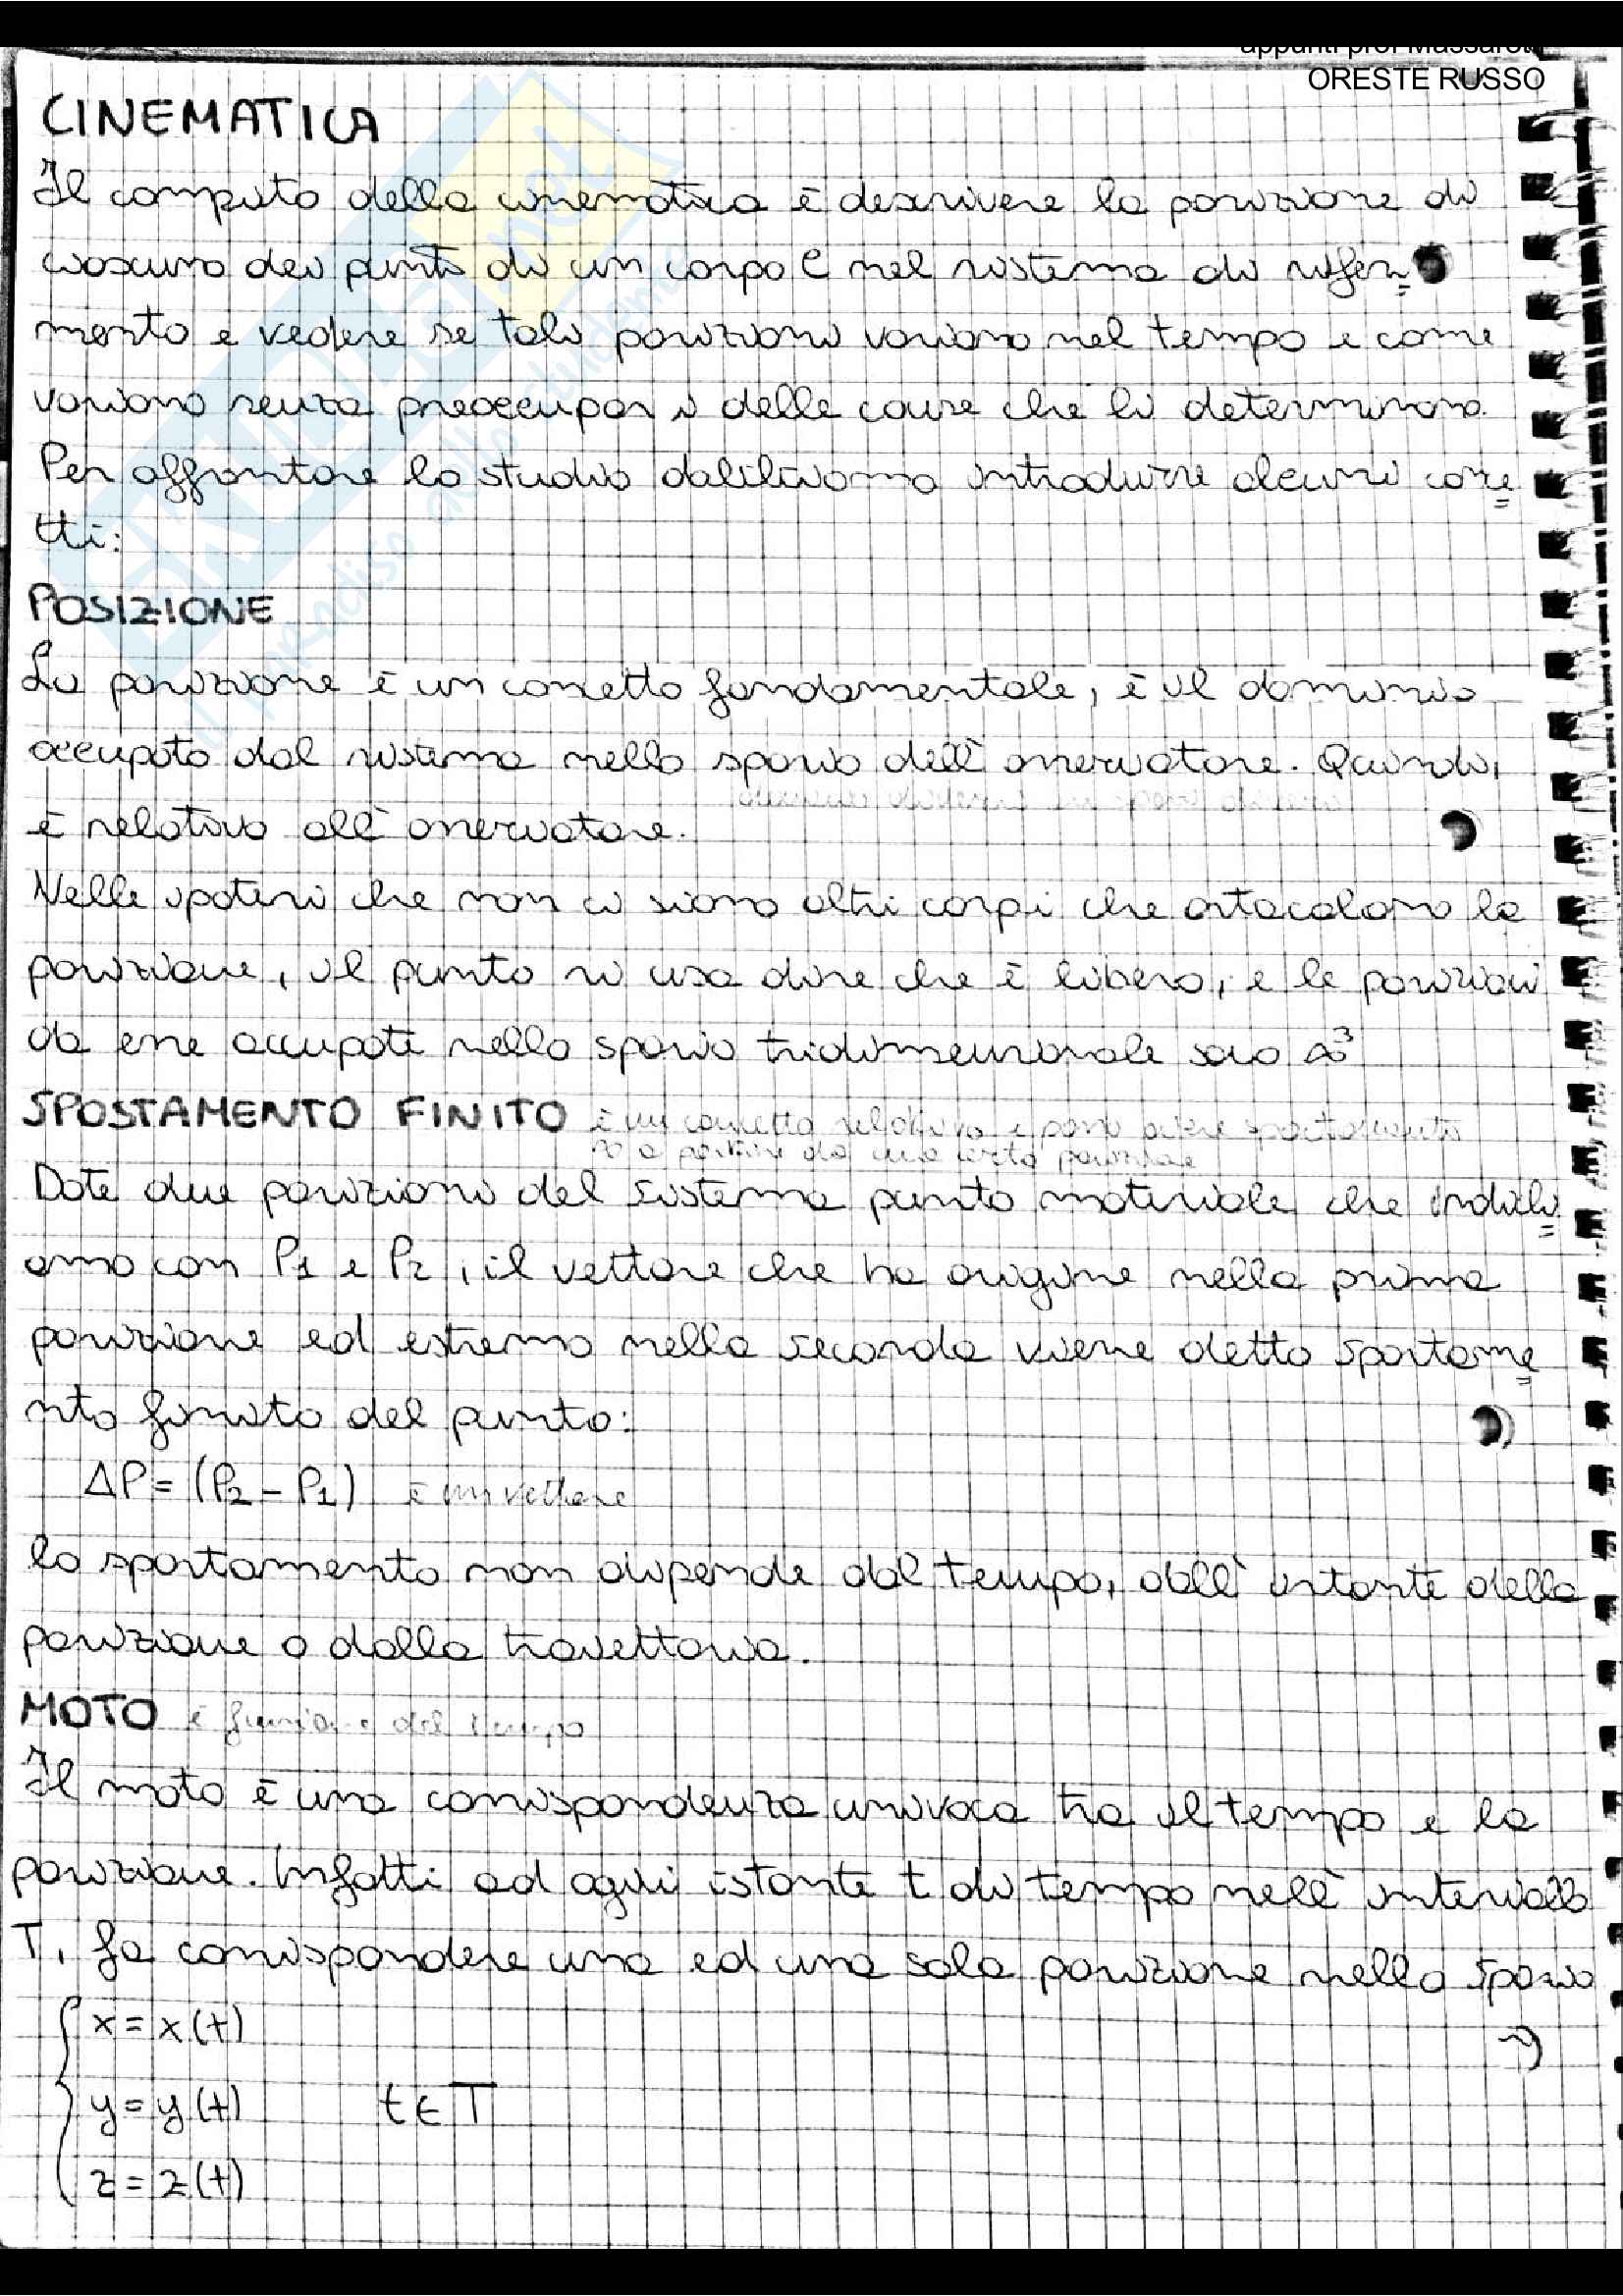 ORESTE RUSSO
CINEMATICA
Il compito della cinematica è descrivere la posizione di
ciascuno dei punti di un corpo C nel sistema di riferi=
mento e vedere se tali posizioni variano nel tempo e come
variano senza preoccuparsi delle cause che li determinano.
Per affrontare lo studio dobbiamo introdurre alcuni conce=
tti:
POSIZIONE
La posizione è un concetto fondamentale, è il dominio
occupato dal sistema nello spazio dell'osservatore. Quindi,
è relativo all'osservatore.
Nelle ipotesi che non ci siano altri corpi che ostacolano la
posizione, il punto si usa dire che è libero, e le posizioni
da esse occupate nello spazio tridimensionale sono ∞³
SPOSTAMENTO FINITO è un concetto relativo e posso avere spostamento
a partire da una certa posizione
Date due posizioni del sistema punto materiale, che indichi=
amo con P1 e P2, il vettore che ha origine nella prima
posizione ed estremo nella seconda viene detto spostame=
nto finito del punto:
ΔP = (P2 - P1) è un vettore
lo spostamento non dipende dal tempo, dall'istante della
posizione o dalla traiettoria.
MOTO è funzione del tempo
Il moto è una corrispondenza univoca tra il tempo e la
posizione. Infatti ad ogni istante t di tempo nell'intervallo
T, fa corrispondere una ed una sola posizione nello spazio
x = x(t)
y = y(t) t ∈ T
z = z(t)